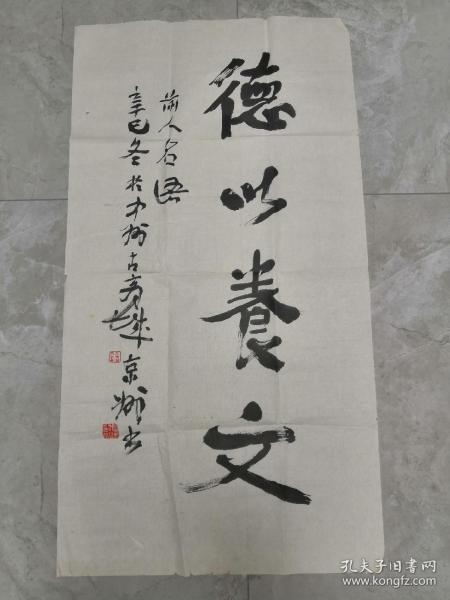 德以養文
前人名语
辛巳冬於中州古商城京卿书
孔夫子旧书网
www.kongfz.com